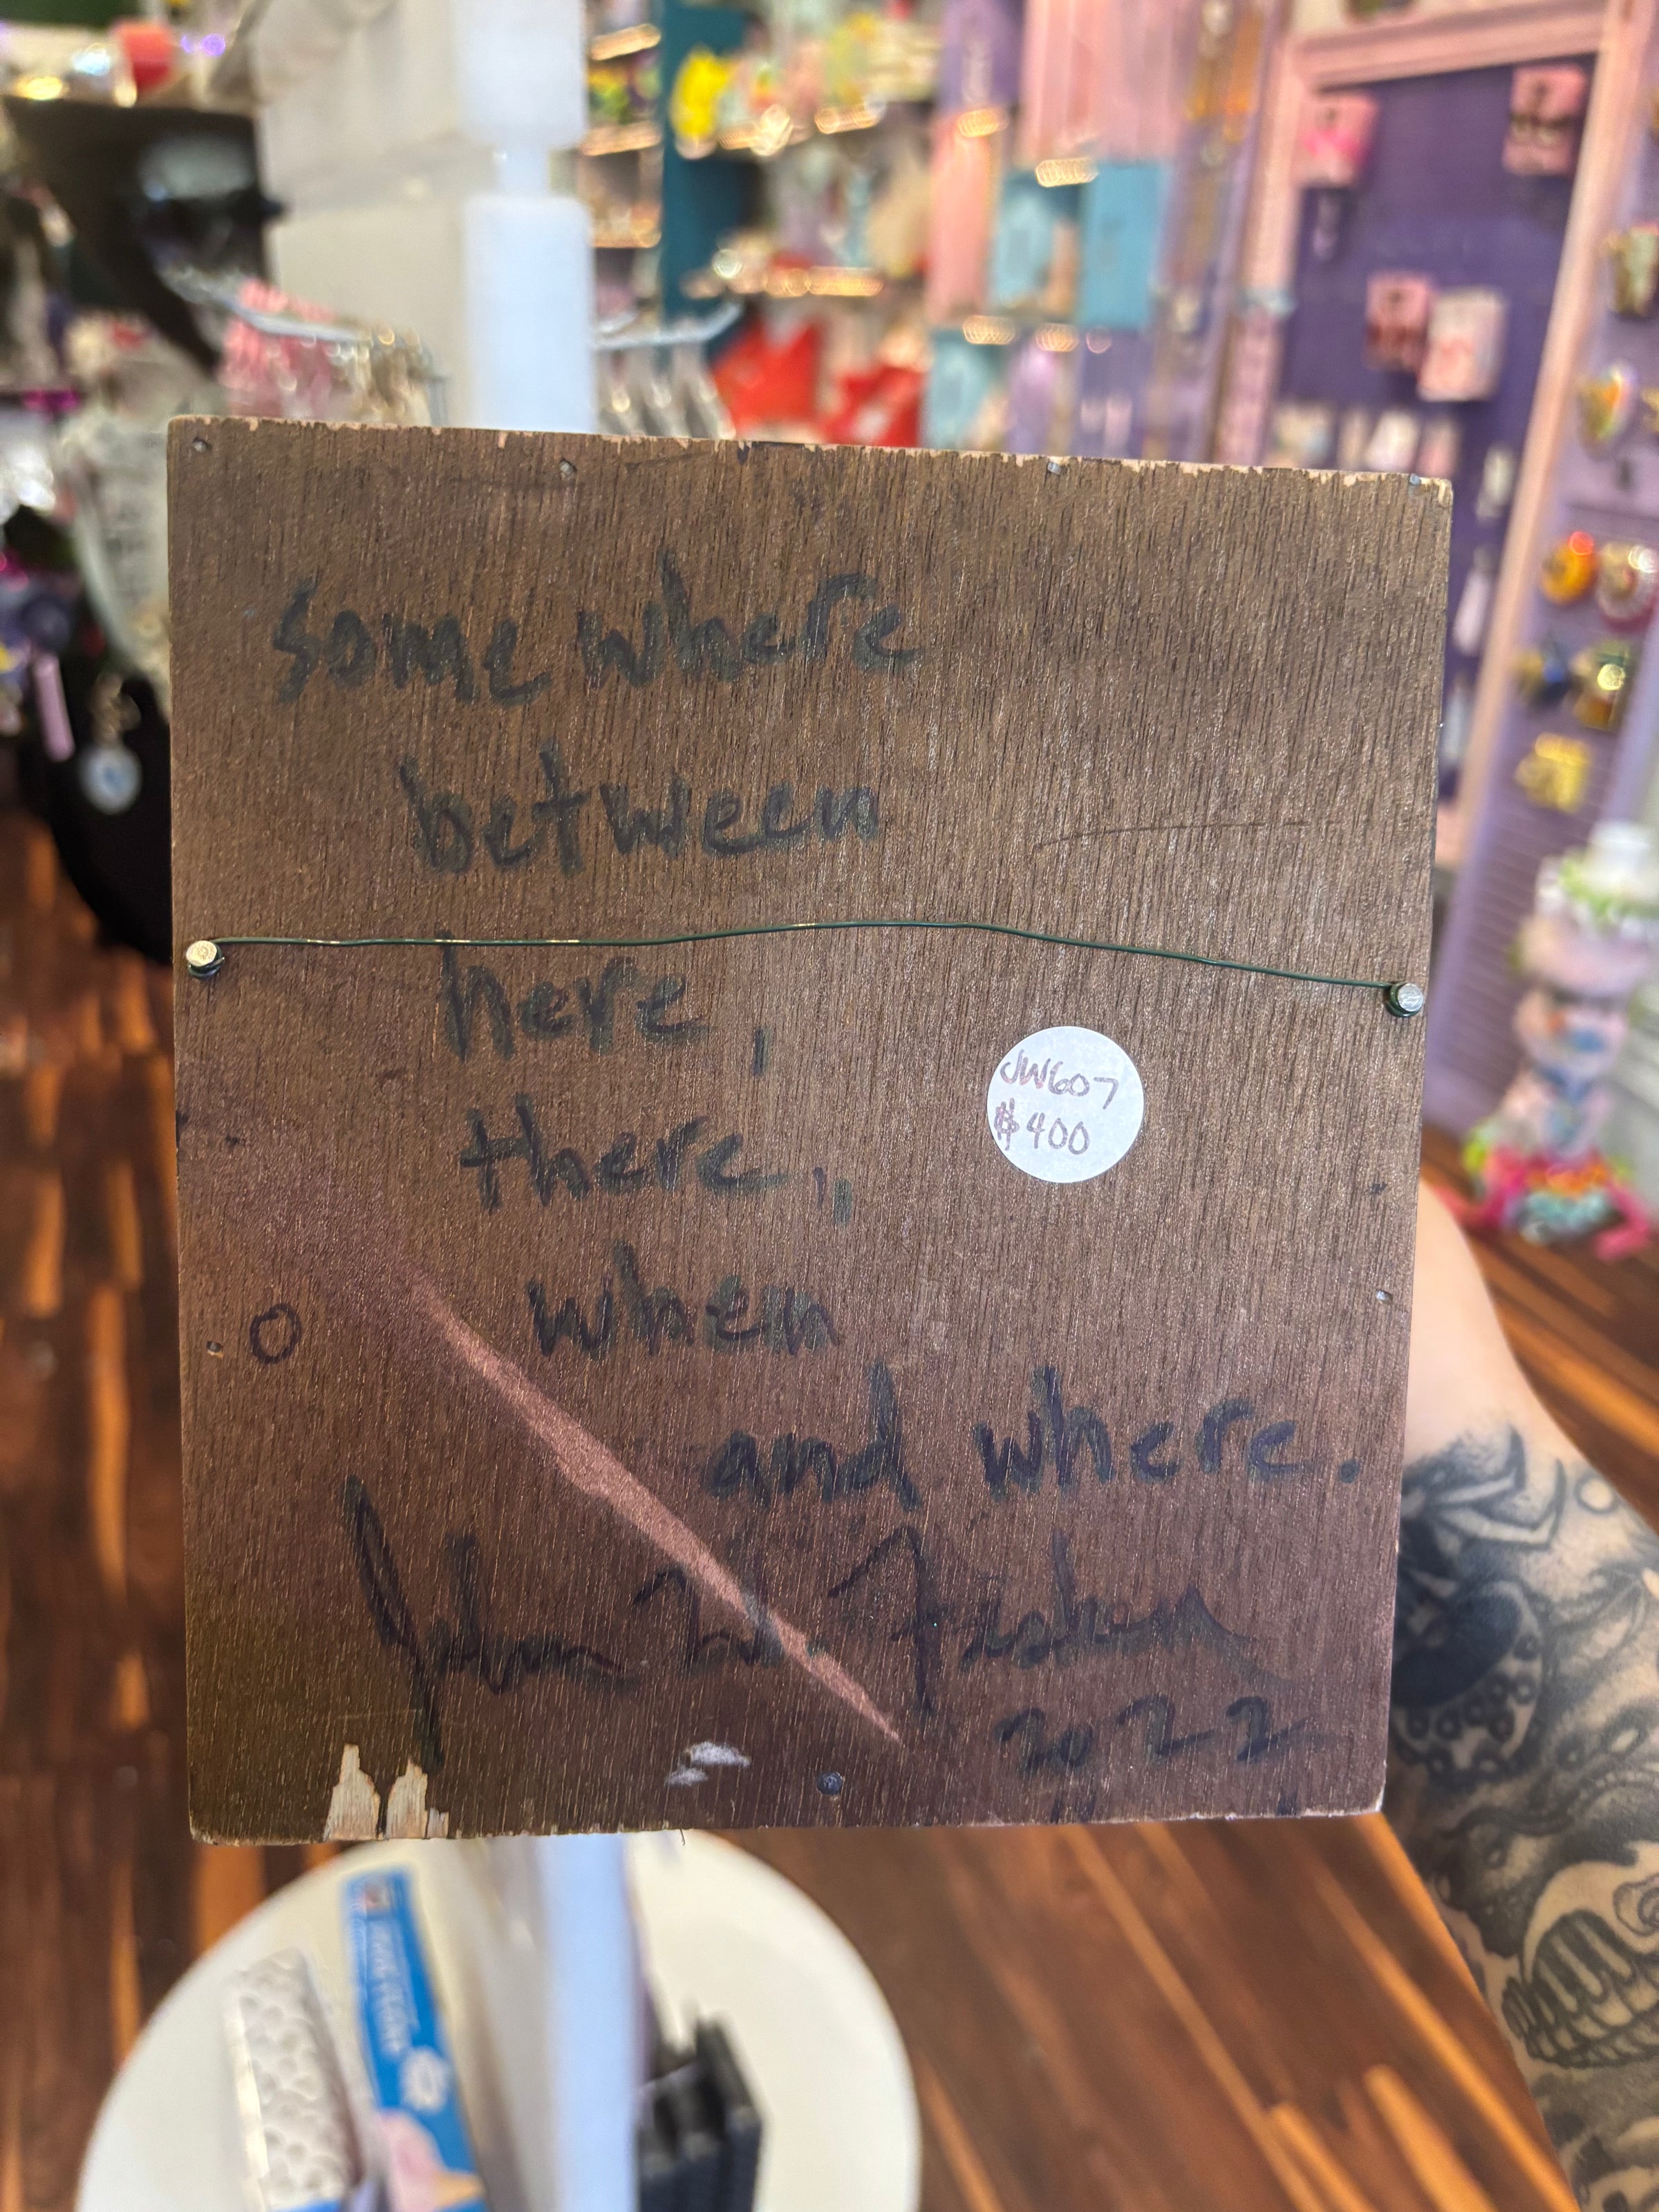 somewhere
between
here,
there,
when
and where.
John
2022
JW607
$400